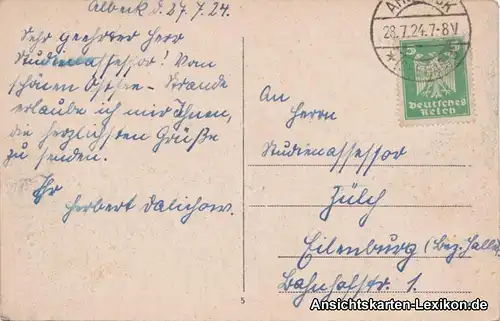 Ahlbeck d. 27.7.24.
Sehr geehrter Herr
Studienassessor! Vom
schönen Ostsee-Strande
erlaube ich mir Ihnen,
die herzlichsten Grüße
zu senden.
Ihr
Herbert Dalichow.
28.7.24.7-8V
5
5
Deutsches
Reich
An
Herrn
Studienassessor
Zülch
Eilenburg (Bez. Halle)
Bahnhofstr. 1.
5
Ansichtskarten-Lexikon.de